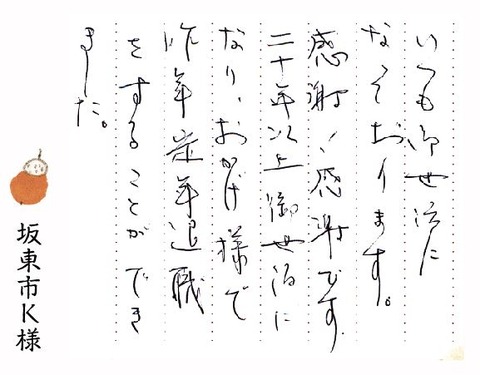 いつも御世話に
なっております。
感謝、感謝です
二十年以上御世話に
なり、おかげ様で
昨年定年退職
をすることができ
ました。
坂東市K様